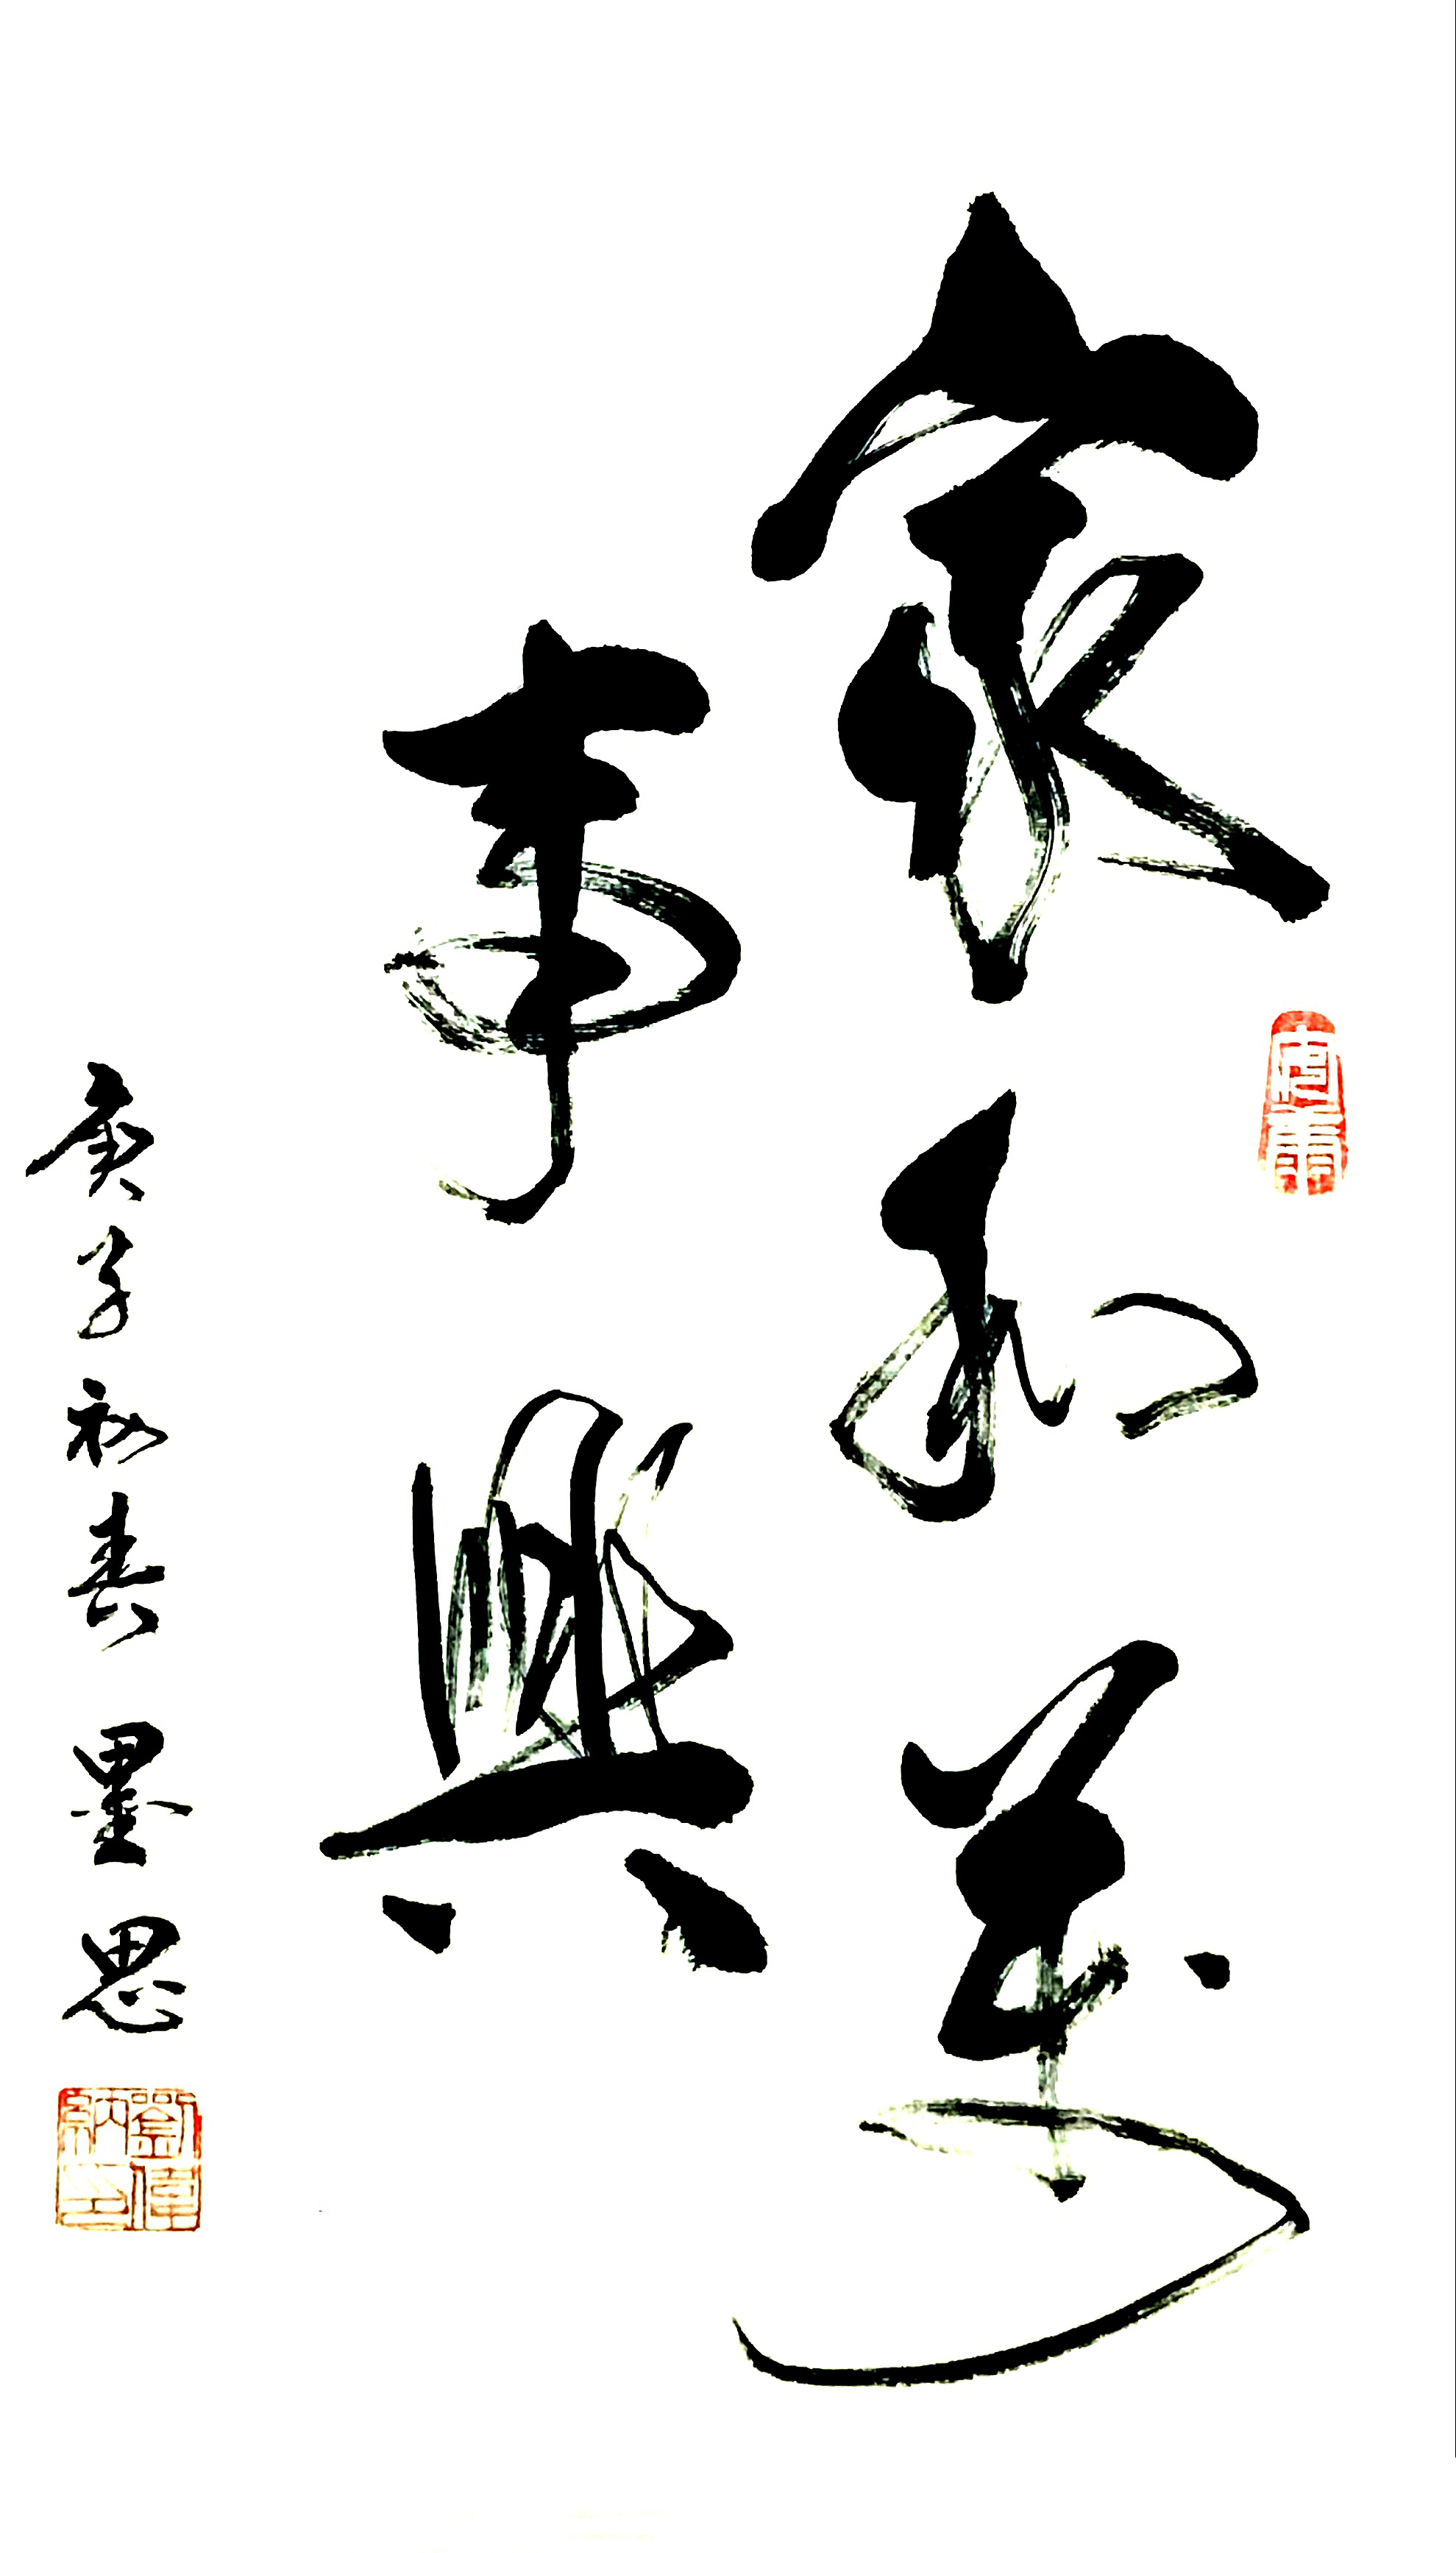 家和萬
事興
庚子初春 墨思
劉偉納印